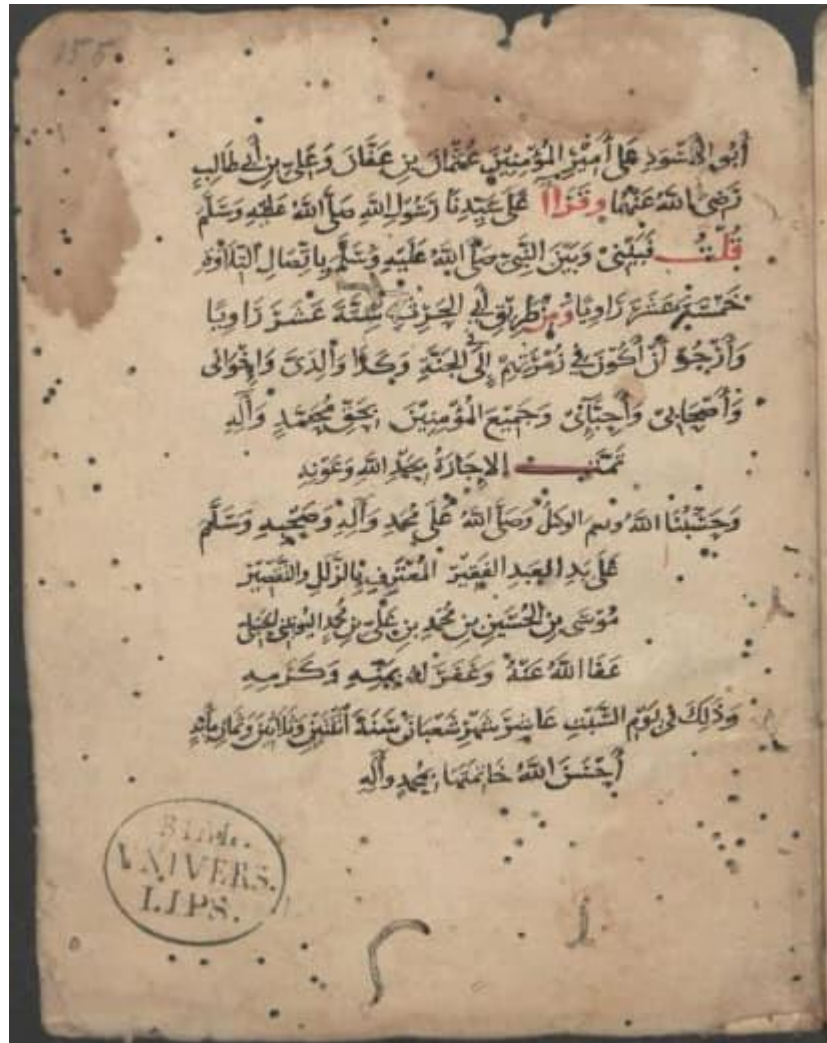 155
أَبُو الأَسْوَدِ عَلَى أَمِيْرِ المُؤْمِنِيْنَ عُثْمَانَ بن عَفَّانَ وَعَلِىِّ بنِ أَبِي طَالِبٍ
رَضِىَ اللهُ عَنْهُمَا وقَرَآا عَلَى سَيِّدِنَا رَسُولِ اللهِ صَلَّى اللهُ عَلَيْهِ وَسَلَّمَ
قُلتُ فَبَيْنِىْ وَبَيْنَ النَّبِىِّ صَلَّى اللهُ عَلَيْهِ وَسَلَّمَ بِاتِّصَالِ التِّلَاوَةِ
خَمْسَةَ عَشَرَ رَاوِيًا وَمِن طَرِيْقِ فى الحِرْفِ سِتَّةَ عَشَرَ رَاوِيًا
وَأَرْجُوْ أَنْ أَكُوْنَ فِي زُمْرَتِهِمْ إِلَى الجَنَّةِ وَكَذَا وَالِدَىَّ وَإِخْوَانِى
وَأَصْحَابِىْ وَأَحِبَّآئِىْ وَجَمِيْعَ المُؤْمِنِيْنَ بِحَقِّ مُحَمَّدٍ وَآلِهِ
تَمَّتْ الإجَازَةُ بِحَمْدِ اللهِ وَعَوْنِهِ
وَحَسْبُنَا اللهُ ونعم الوكيلُ وَصَلَّى اللهُ عَلَى مُحَمَّدٍ وَآلِهِ وَصَحْبِهِ وَسَلَّمَ
عَلَى يَدِ العَبدِ الفَقِيْرِ المُعْتَرِفِ بِالزَّلَلِ وَالتَّقْصِيْرِ
مُوْسَى بنِ الحُسَيْنِ بنِ مُحَمَّدِ بنِ عَلِىِّ بنِ مُحَمَّدٍ اليُونِيْنِى الحَنْبَلِى
عَفَا اللهُ عَنْهُ وَغَفَرَ لَهُ بِمَنِّهِ وَكَرَمِهِ
وَذَلِكَ فِي يَوْمِ السَّبْتِ عَاشِرَ شَهْرِ شَعْبَانَ سَنَةَ اثْنَتَيْنِ وَثَلَاثِيْنَ وَثَمَانِ مِائَةٍ
أَحْسَنَ اللهُ خَاتِمَتَهَا بِمُحَمَّدٍ وَآلِهِ
BIBL.
VNIVERS.
LIPS.